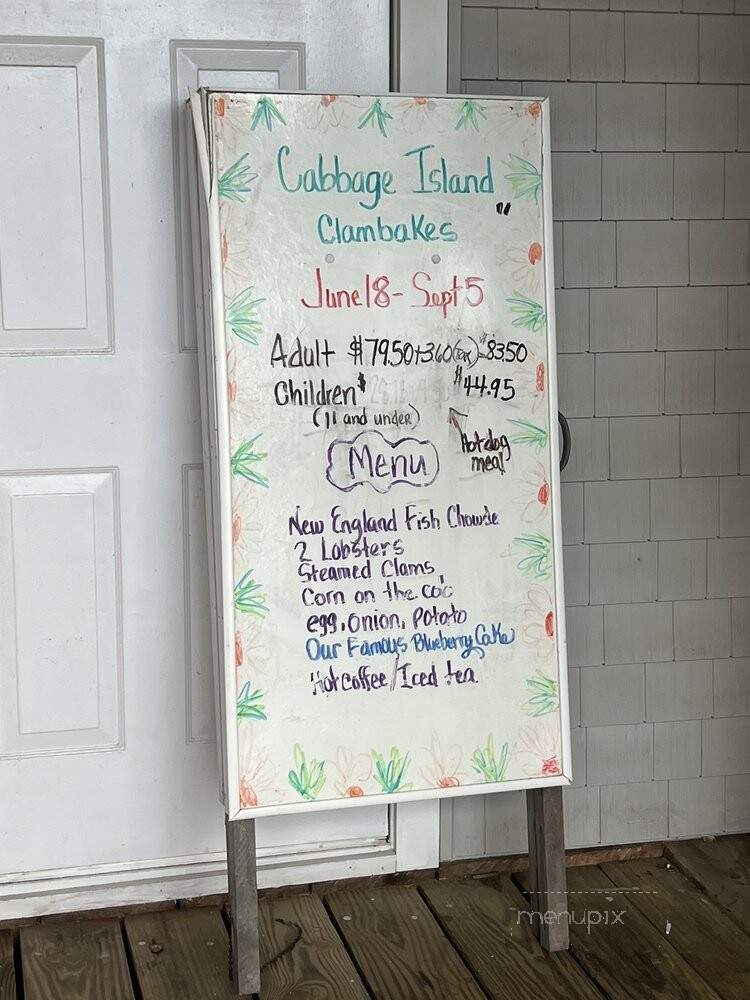 Cabbage Island
Clambakes
June 18 - Sept 5
Adult $79.50+3.60(tax)=$83.50
Children $ $44.95
(11 and under)
Hotdog
meal
Menu
New England Fish Chowde
2 Lobsters
Steamed Clams
Corn on the cob
egg, onion, potato
Our Famous Blueberry Cake
Hot coffee/Iced tea
menupix